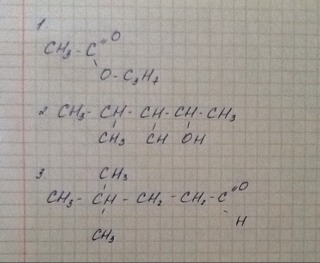 1
CH₃ - C = O
O - C₃H₇
2 CH₃ - CH - CH - CH - CH₃
CH₃ CH OH
3 CH₃
CH₃ - CH - CH₂ - CH₂ - C = O
CH₃ H